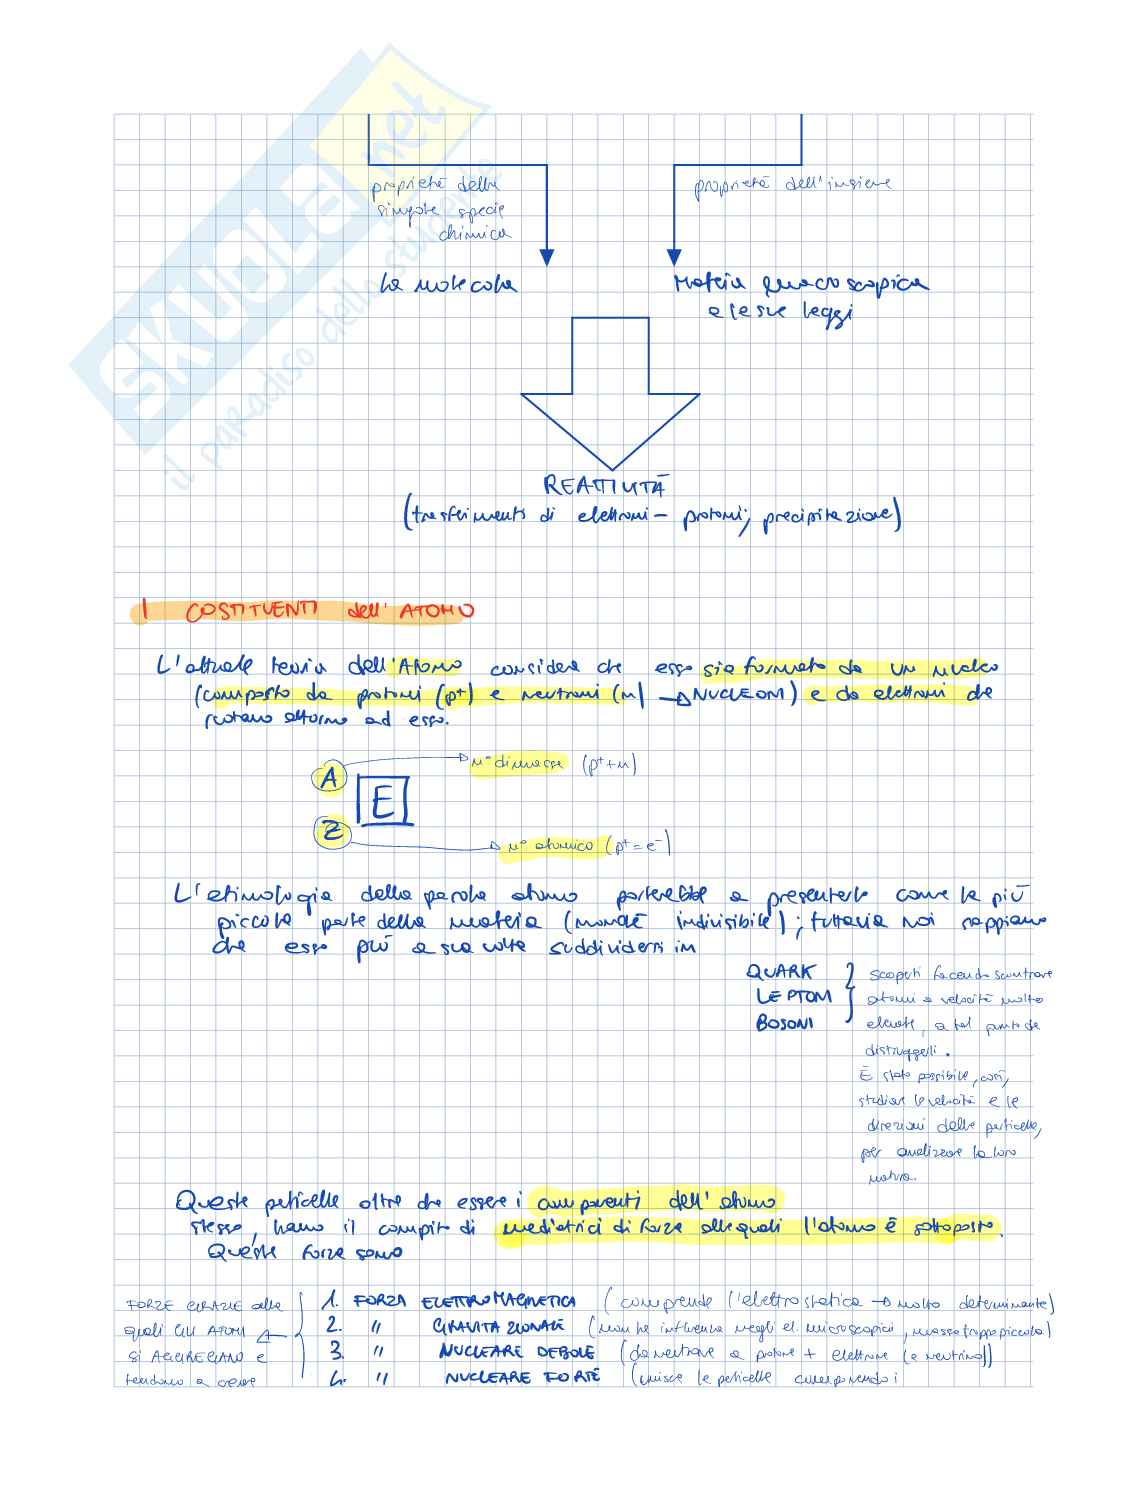 SKUOLA.net
il paradiso dello studente
proprietà delle
singole specie
chimica
proprietà dell'insieme
la molecola
Materia macroscopica
e le sue leggi
REATTIVITÀ
(trasferimenti di elettroni – protoni; precipitazione)
I COSTITUENTI dell'ATOMO
L'attuale teoria dell'Atomo considera che esso sia formato da un nucleo
(composto da protoni (p+) e neutroni (n) → NUCLEONI) e da elettroni che
ruotano attorno ad esso.
A → n° di massa (p+ + n)
E
Z → n° atomico (p+ = e-)
L'etimologia della parola atomo porterebbe a presentarlo come la più
piccola parte della materia (monade indivisibile); tuttavia noi sappiamo
che esso può a sua volta suddividersi in
QUARK
LEPTONI
BOSONI
scoperti facendo scontrare
atomi a velocità molto
elevate, a tal punto da
distruggerli.
È stato possibile, così,
studiare le velocità e le
direzioni delle particelle,
per analizzare la loro
natura.
Queste particelle oltre che essere i componenti dell'atomo
stesso, hanno il compito di mediatrici di forze alle quali l'atomo è sottoposto.
Queste forze sono
FORZE GRAZIE alle
quali GLI ATOMI
SI AGGREGANO e
tendono a
1. FORZA ELETTROMAGNETICA (comprende l'elettrostatica → molto determinante)
2. " GRAVITAZIONALE (non ha influenza negli el. microscopici, massa troppo piccola)
3. " NUCLEARE DEBOLE (da neutrone a protone + elettrone (e neutrino))
4. " NUCLEARE FORTE (unisce le particelle componendo i